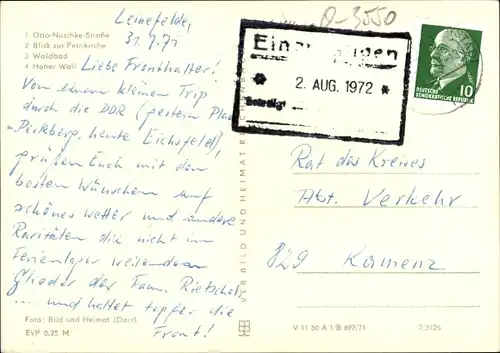 D-3550
Leinefelde,
31.7.71
1 Otto-Nuschke-Straße
2 Blick zur Petrikirche
3 Waldbad
4 Hoher Wall
Liebe Fronthalter!
Von einem kleinen Trip
durch die DDR (gestern
u. Perkberg, heute Eichsfeld),
grüßen Euch mit den
besten Wünschen auf
schönes Wetter und andere
Raritäten die nicht im
Ferienlager weilenden
Glieder der Fam. Rietschel
... und haltet tapfer die
Front!
Foto: Bild und Heimat (Darr)
EVP 0,25 M
VEB BILD UND HEIMAT
Eingegangen
* 2. AUG. 1972 *
Erledigt
10
DEUTSCHE
DEMOKRATISCHE REPUBLIK
Rat des Kreises
Abt. Verkehr
829 Kamenz
V 11 50 A 1/B 697/71